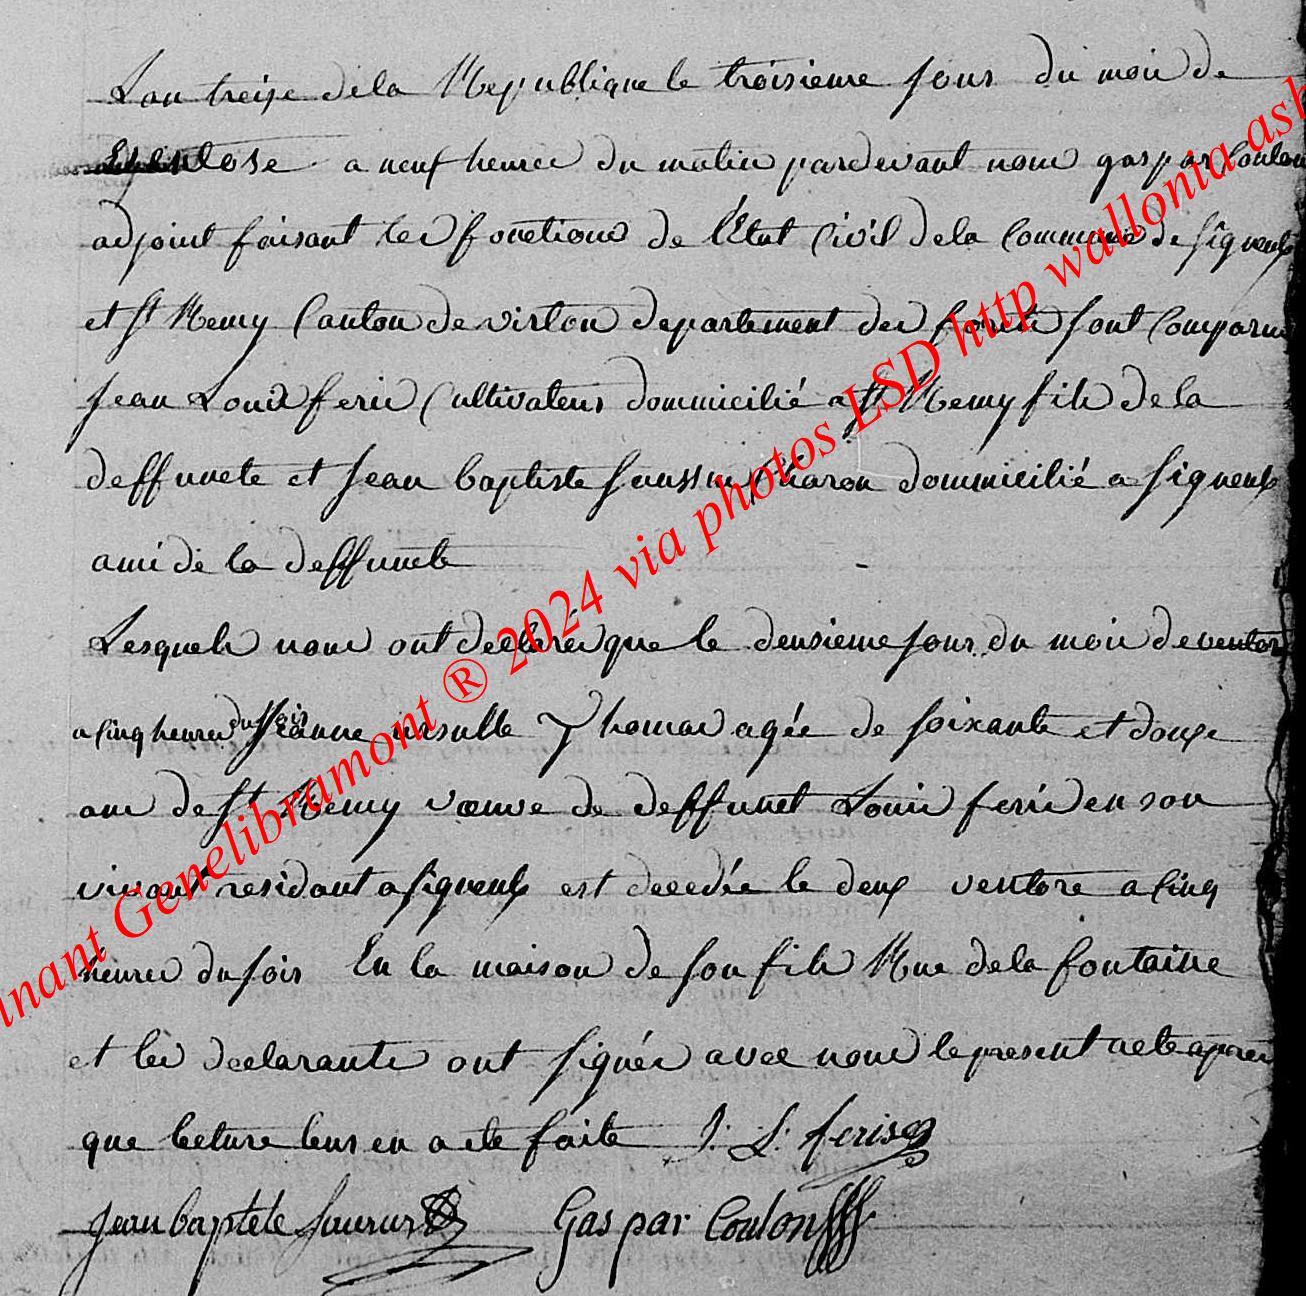 Lan treize dela Republique le troisieme jour du mois de
ventose a neuf heures du matin pardevant nous gaspar Coulon
adjoint faisant les fonctions de l'État Civil dela Commune de Signeulx
et St Remy Canton de virton departement des forêts sont Comparus
Jean Louis feris Cultivateur dommicilié a St Remy fils de la
deffuncte et Jean baptiste dommicilié a Signeulx
ami de la deffuncte
Lesquels nous ont declarés que le deusieme jour du mois de ventose
a Cinq heures du soir Jeanne ursulle Thomas agée de soixante et douze
ans de St Remy veuve de deffunct Louis feris en son
vivant residant a Signeulx est decedée le deux ventose a Cinq
heures du soir En la maison de son fils Rue de la fontaine
et les declarants ont signés avec nous le present acte apres
que lecture leur en a ete faite J. L. feris
Jean baptiste Gaspar Coulon
inant Genelibramont ® 2024 via photos LSD http wallonia-ash